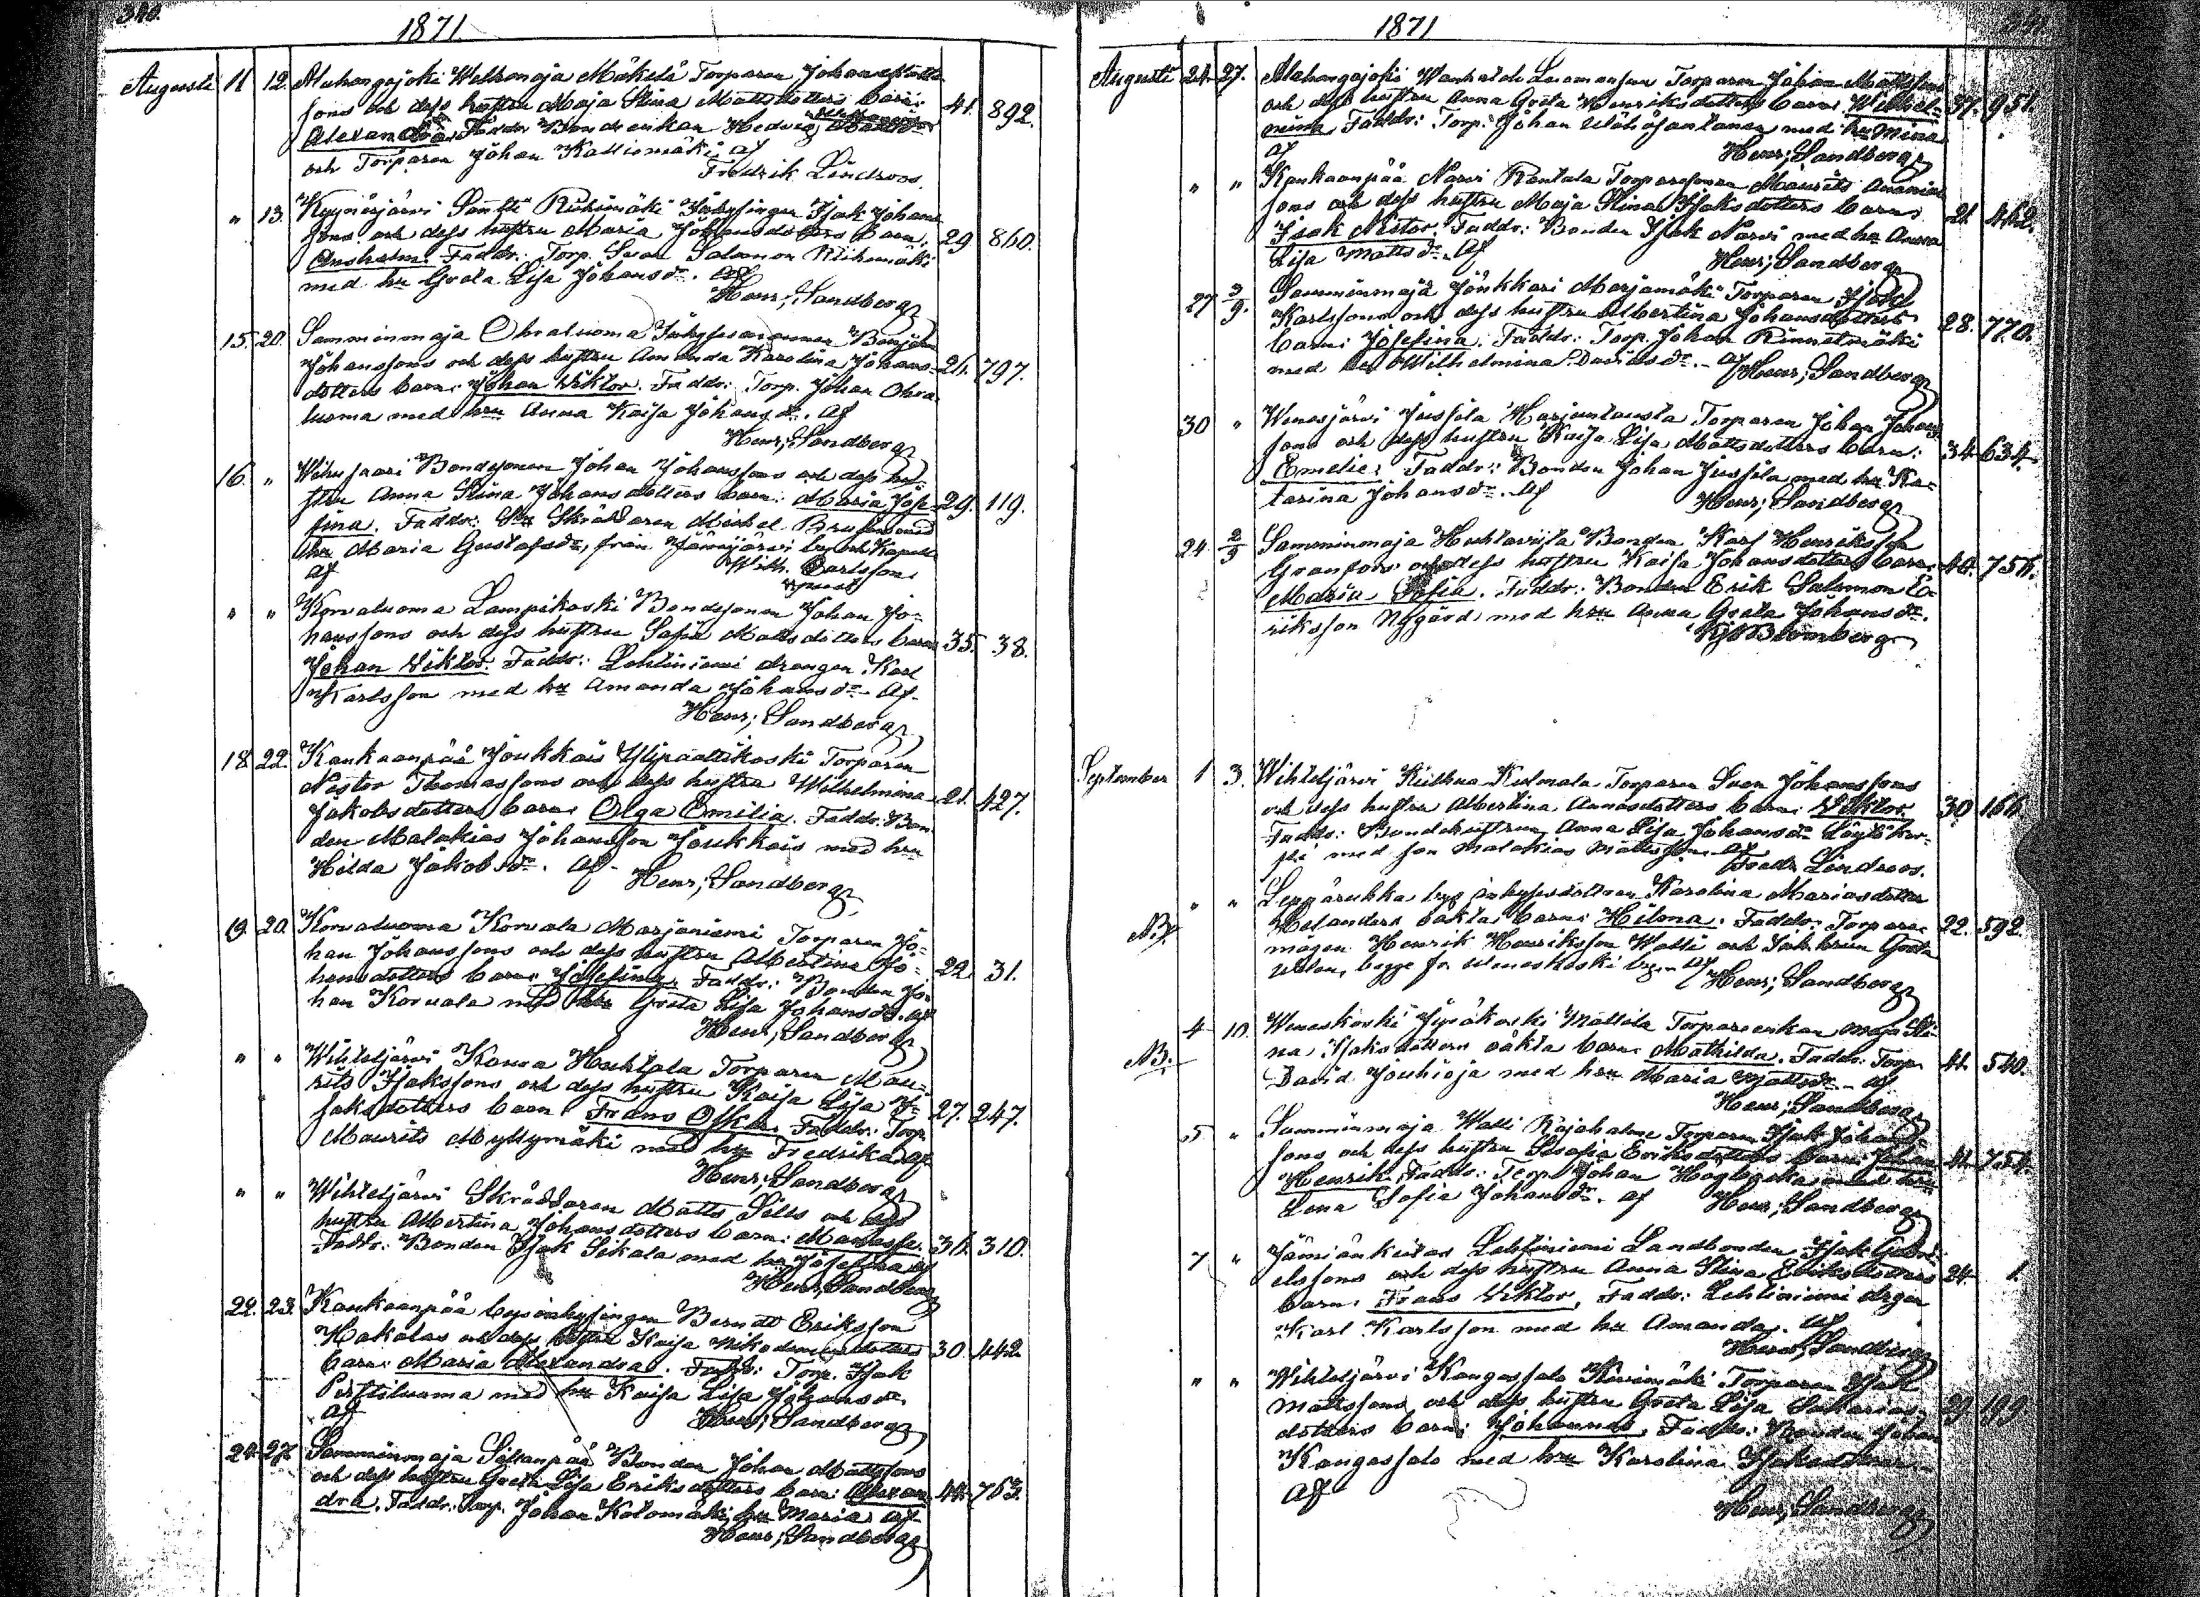 340.
1871
Augusti 11 12. Alahongojoki Walkonoja Mäkelä Torparen Johan Matts
sons och dess hustru Maja Stina Mattsdotters barn: 41. 892.
Alexandra. Faddr: Bondeenkan Hedvig
och Torparen Johan Kalliomäki, af
Fredrik Lindroos.
" 13. Kyynärjärvi Santti Riihimäki Inhysingen Isak Johans
sons och dess hustru Maria Johansdotters barn: 29 860.
Anshelm. Faddr: Torp. Sven Salomon Riihimäki
med hu Greta Lisa Johansdr. af
Henr; Sandberg
15. 20. Samminmaja Ohraluoma Inhysesmannen Benjam
Johanssons och dess hustru Amanda Karolina Johans- 21. 797.
dotters barn: Johan Viktor. Faddr: Torp. Johan Ohra
luoma med hru Anna Kaisa Johansdr. af
Henr; Sandberg
16. " Wihusaari Bondesonen Johan Johanssons och dess hu-
stru Anna Stina Johansdotters barn: Maria Jose- 29. 119.
fina. Faddr: Skräddaren Michel Brusin med
hu Maria Gustafsdr, från Jämijärvi by och Kapell
af Wilh. Carlsson
" " Korvaluoma Lampikoski Bondesonen Johan Jo-
hanssons och dess hustru Sofia Mattsdotters barn 35. 38.
Johan Viktor. Faddr: Lehtiniemi drängen Karl
Karlsson med hu Amanda Johansdr. af
Henr; Sandberg
18. 22. Kankaanpää Joukkais Ylipaattikoski Torparen
Nestor Thomassons och dess hustru Wilhelmina 21. 427.
Jakobsdotters barn: Olga Emilia. Faddr: Bon
den Malakias Johansson Joukkais med hru
Hilda Jakobsdr. af
Henr; Sandberg
19. 20. Korvaluoma Korvala Marjaniemi Torparen Jo-
han Johanssons och dess hustru Albertina Jo- 22. 31.
hansdotters barn: Josefina. Faddr: Bonden Jo-
han Korvala med hu Greta Lisa Johansdr. af
Henr; Sandberg
" " Wihteljärvi Kauva Huhtala Torparen Mau-
rits Isakssons och dess hustru Kaisa Lisa I-
saksdotters barn: Frans Oskar. Faddr: Torp 27. 247.
Maurits Myllymäki med hu Fredrika af
Henr; Sandberg
" " Wihteljärvi Skräddaren Matts Sills och dess
hustru Albertina Johansdotters barn: Manasse. 36. 310.
Faddr: Bonden Isak Sikala med hu Josefina af
Henr; Sandberg
22. 23. Kankaanpää bys inhysingen Berndt Eriksson
Hakalas och dess hustru Kaisa Nikodemusdotters 30. 442.
barn: Maria Alexandra. Faddr: Torp. Isak
Perttiluoma med hu Kaisa Lisa Johansdr.
af Henr; Sandberg
24. 27. Samminmaja Siltanpää Bonden Johan Mattssons
och dess hustru Greta Lisa Eriksdotters barn: Alexan 44. 763.
dra. Faddr: Torp. Johan Kolomäki, hu Maria af
Henr; Sandberg
341.
1871
Augusti 24. 27. Alahongojoki Wanhatalo Torparen Johan Mattssons
och dess hustru Anna Greta Henriksdotters barn Wilhel- 37. 951.
mina. Faddr: Torp. Johan med hu Mina
af Henr; Sandberg
" " Kankaanpää Narvi Rantala Torparesonen Maurits Ananias
sons och dess hustru Maja Stina Isaksdotters barn: 21. 462.
Isak Nestor. Faddr: Bonden Isak Narvi med hu Anna
Lisa Mattsdr. af
Henr; Sandberg
27 3/9. Samminmaja Jonkkari Marjamäki Torparen Isak
Karlssons och dess hustru Albertina Johansdotters 28. 770.
barn: Josefina. Faddr: Torp. Johan Rinnetmäki
med hu Wilhelmina Davidsdr. af Henr; Sandberg
30 " Wenesjärvi Jussila Harjuntausta Torparen Johan Johans
sons och dess hustru Kaisa Lisa Mattsdotters barn: 34. 634.
Emelie. Faddr: Bonden Johan Jussila med hu Ka-
tarina Johansdr. af
Henr; Sandberg
24 2/9 Samminmaja Huhtaviita Bonden Karl Henriksson
Granfors och dess hustru Kaisa Johansdotters barn: 40. 756.
Maria Sofia. Faddr: Bonden Erik Salomon E-
riksson Nygård med hru Anna Greta Johansdr.
Blomberg
September 1 3. Wihteljärvi Kiilkua Kulmala Torparen Sven Johanssons
och dess hustru Albertina Annasdotters barn: Viktor. 30 166
Faddr: Bondehustrun Anna Lisa Johansdr Löytökor-
pi med son Malakias Mattsson. af
Fredr Lindroos.
" " Leppäruhka bys inhysesdottern Karolina Mariasdotter
NB. Helanders oäkta barn: Hilma. Faddr: Torpare 22. 592.
mågen Henrik Henriksson Walli och Greta
bägge fr Weneskoski by. af
Henr; Sandberg
4 10. Weneskoski Jyräkoski Mattila Torpareenkan Maja Sti-
NB. na Isaksdotters oäkta barn: Mathilda. Faddr: Torp. 41. 540.
David Jouhioja med hru Maria Mattsdr. af
Henr; Sandberg
5 " Samminmaja Walli Rajahalme Torparen Isak Johans
sons och dess hustru Serafia Eriksdotters barn: Johan 41. 751.
Henrik. Faddr: Torp. Johan Höglbacka med hru
Lena Sofia Johansdr. af Henr; Sandberg
7 " Jämiänkeidas Lehtiniemi Landbonden Isak Gabri-
elssons och dess hustru Anna Stina Eriksdotters 24. 1.
barn: Frans Viktor. Faddr: Lehtiniemi drgen
Karl Karlsson med hu Amanda. af
Henr; Sandberg
" " Wihteljärvi Kangassalo Kivimäki Torparen Isak
Mattssons och dess hustru Greta Lisa Sakarias- 29 199
dotters barn: Johannes. Faddr: Bonden Johan
Kangassalo med hru Karolina Isaksdotter.
af
Henr; Sandberg